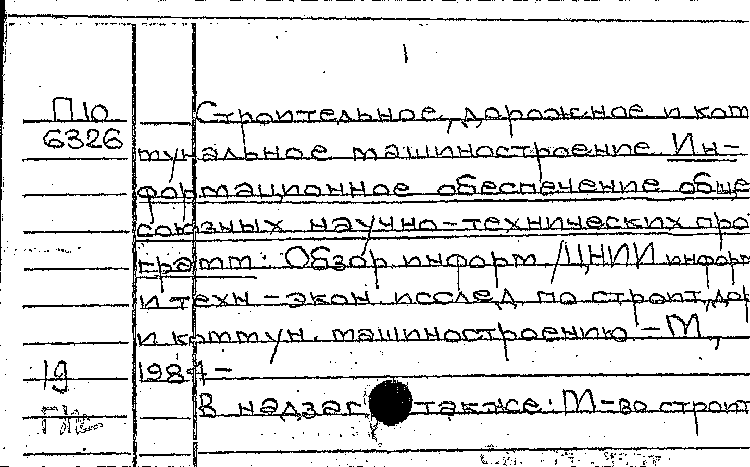 П10
6326
Строительное, дорожное и ком
мунальное машиностроение. Ин-
формационное обеспечение обще
союзных научно-технических про
грамм: Обзор. информ / ЦНИИ информ
и техн-экон. исслед по строит, дор
и коммун. машиностроению – М,
19
1984–
В надзаг также: М-во строит